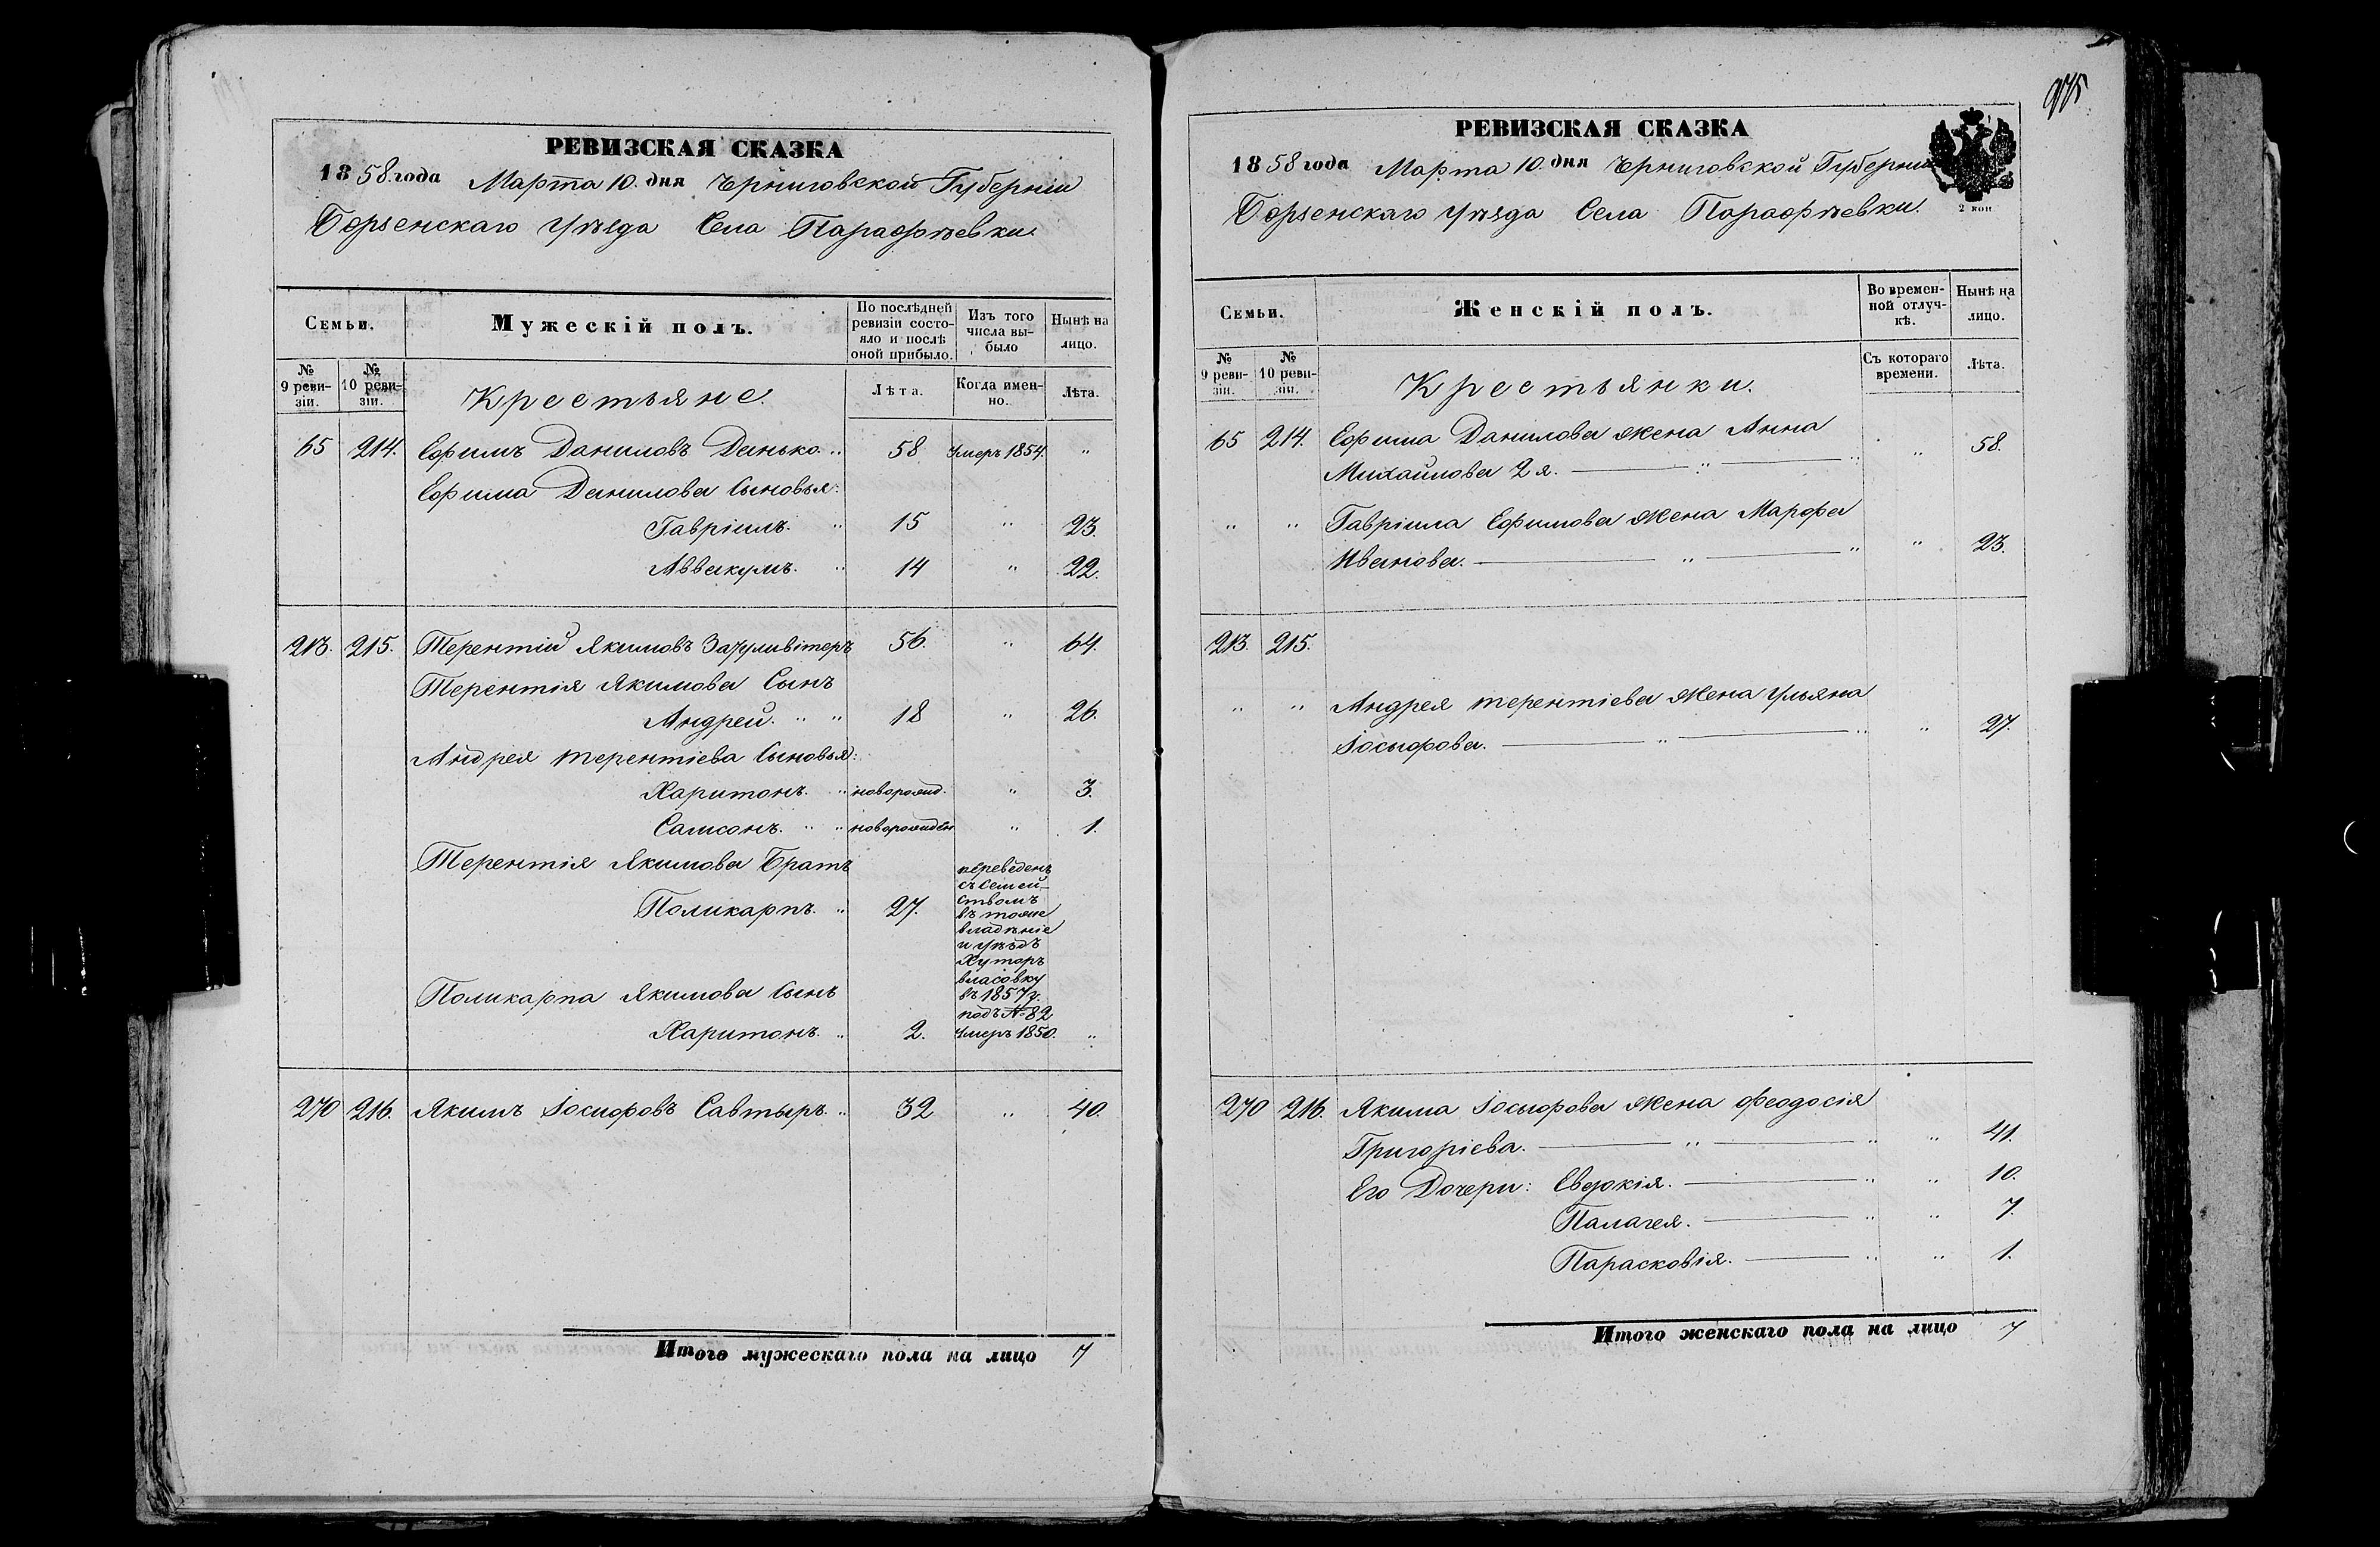 РЕВИЗСКАЯ СКАЗКА
1858 года Марта 10. дня Черниговской Губерніи
Борзенскаго Уѣзда Села Парафѣевки.
Семьи.
Мужескій полъ.
По послѣдней ревизіи состояло и послѣ оной прибыло.
Изъ того числа выбыло
Нынѣ на лицо.
№ 9 ревизіи.
№ 10 ревизіи.
Крестьяне.
Лѣта.
Когда именно.
Лѣта.
65 214. Ефимъ Даниловъ Данько. " 58 Умеръ 1854. "
Ефима Данилова Сыновья:
Гавріилъ. " 15 " 23.
Аввакумъ. " 14 " 22.
213. 215. Терентій Якимовъ 56. " 64.
Терентія Якимова Сынъ
Андрей. " " 18 " 26.
Андрея Терентіева Сыновья:
Харитонъ. " новорожд. " 3.
Самсонъ. " " новорожден " 1.
Терентія Якимова Братъ
Поликарпъ. " 27.
переведенъ
съ Семей-
ствомъ
въ тоже
владѣніе
и уѣздъ
Хуторъ
власовку
въ 1857 г.
подъ № 82
Поликарпа Якимова Сынъ
Харитонъ. " 2. Умеръ 1850. "
270 216. Якимъ Іосифовъ Савтыръ. " 32 " 40.
Итого мужескаго пола на лицо 7
975
РЕВИЗСКАЯ СКАЗКА
1858 года Марта 10. дня Черниговской Губерніи
Борзенскаго Уѣзда Села Парафѣевки.
2 коп
Семьи.
Женскій полъ.
Во временной отлучкѣ.
Нынѣ на лицо.
№ 9 ревизіи.
№ 10 ревизіи.
Крестьянки.
Съ котораго времени.
Лѣта.
65 214. Ефима Данилова жена Анна
Михайлова 2я. — " — " " 58.
" " Гавріила Ефимова жена Марфа
Иванова. — " — " " 23.
213. 215.
" " Андрея Терентіева жена Ульяна
Іосифова. — " — " " 27.
270 216. Якима Іосифова жена Феодосія
Григоріева. — " — " " 41.
Его Дочери: Евдокія. — " " 10.
Палагея. — " " 7.
Парасковія. — " " 1.
Итого женскаго пола на лицо 7